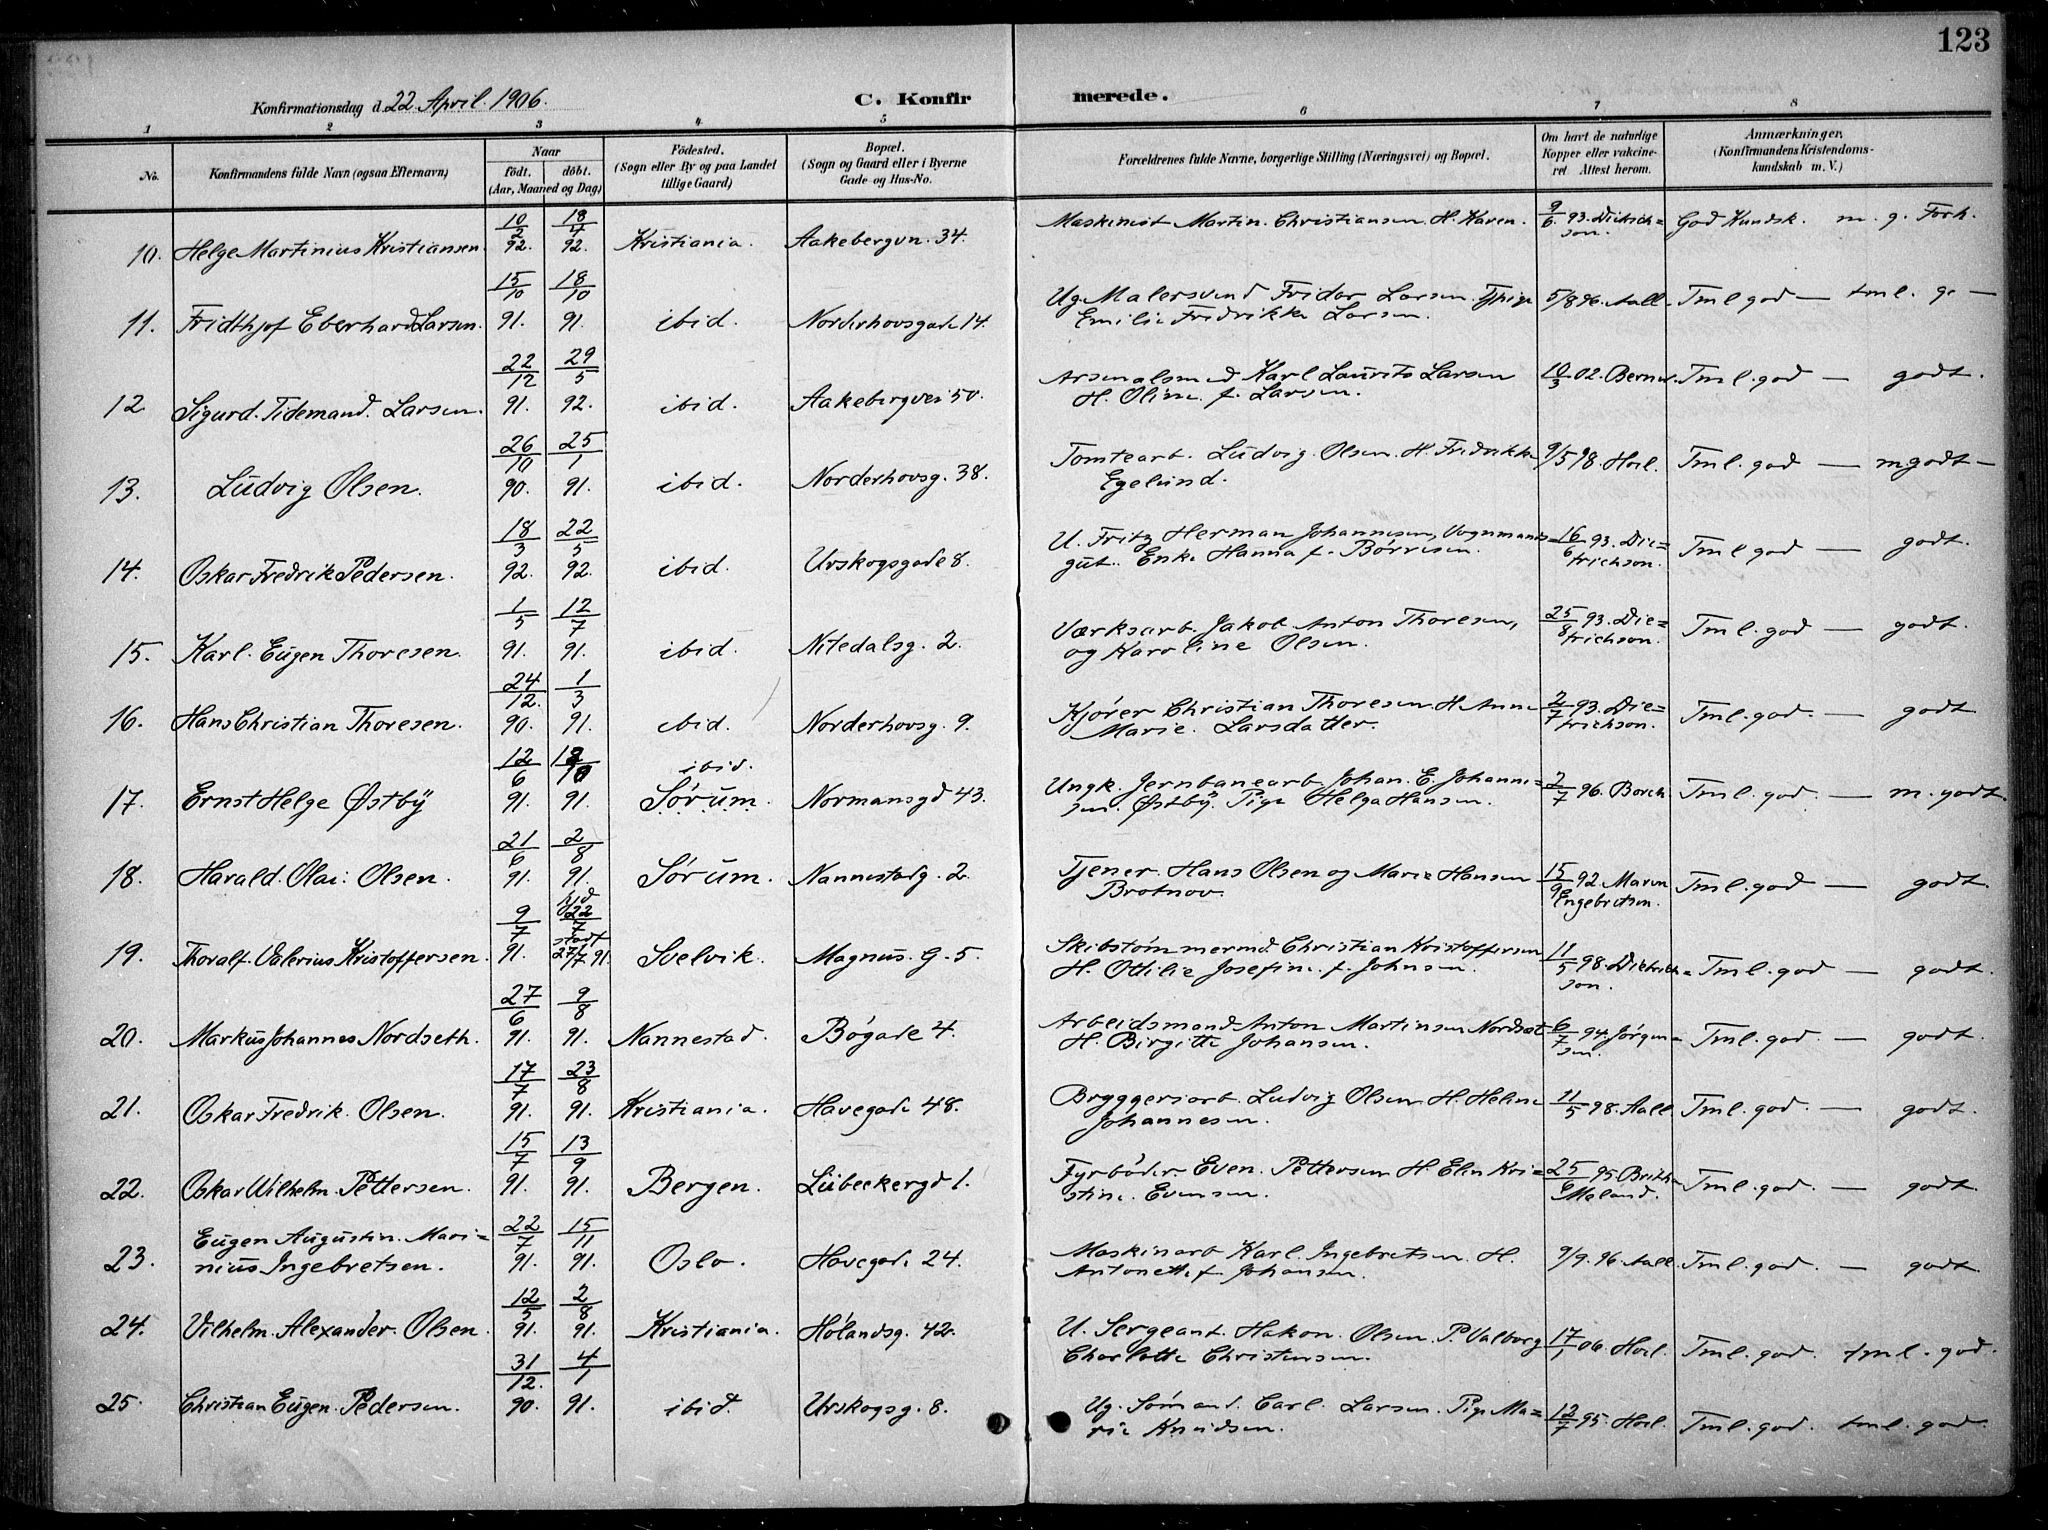 123
Konfirmationsdag d. 22 April. 1906.
C. Konfirmerede.
1 2 3 4 5 6 7 8
No.
Konfirmandens fulde Navn (ogsaa Efternavn)
Naar
födt. döbt.
(Aar, Maaned og Dag)
Födested.
(Sogn eller By og paa Landet
tillige Gaard)
Bopæl.
(Sogn og Gaard eller i Byerne
Gade og Hus-No.
Forældrenes fulde Navne, borgerlige Stilling (Næringsvei) og Bopæl.
Om havt de naturlige
Kopper eller vakcine-
ret. Attest herom.
Anmærkninger.
(Konfirmandens Kristendoms-
kundskab m. V.)
10. Helge Martinius Kristiansen. 10/2 92. 18/4 92. Kristiania. Aakebergvn. 34. Maskinist Martin Christiansen. H. Karen. 9/6 93. Dietrich=
son. God Kundsk. m. g. Forh.
11. Fridthjof Eberhard Larsen. 15/10 91. 18/10 91. ibid. Norderhovsgade 14. Ug. Malersvend Fridor Larsen. Pige 5/8 96. Aall. Tml. god — tml. g. —
Emilie Fredrikke Larsen.
12. Sigurd. Tidemand. Larsen. 22/12 91. 29/5 92. ibid. Aakebergvei 50. Arsenalsmed Karl Laurits Larsen 10/3 02. Berner. Tml. god — godt.
H. Oline f. Larsen.
13. Ludvig Olsen. 26/10 90. 25/1 91. ibid. Norderhovsg. 38. Tomtearb. Ludvig Olsen. H. Fredrikke 9/5 98. Hoel. Tml. god — m godt —
Egelund.
14. Oskar Fredrik Pedersen. 18/3 92. 22/5 92. ibid. Urskogsgade 8. U. Fritz Herman Johannesen, Vognmands= 16/6 93. Die=
gut. Enke Hanna f. Börresen. trichson. Tml. god — godt.
15. Karl. Eugen Thoresen. 1/5 91. 12/7 91. ibid. Nitedalsg. 2. Værksarb. Jakob Anton Thoresen, 25/8 93. Die=
og Karoline Olsen. trichson. Tml. god — godt.
16. Hans Christian Thoresen. 24/12. 90. 1/3 91. ibid. Norderhovsg. 9. Kjörer Christian Thoresen. H. Anne 2/7 93. Die=
Marie. Larsdatter. trichson. Tml. god. — godt
17. Ernst Helge Østby 12/6 91. 18/10 91. ibid. Sørum. Normansgd 43. Ungk. Jernbanearb. Johan. E. Johanne= 2/7 96. Borch Tml. god. — m. godt.
sen. Østby. Pige Helga Hansen.
18. Harald. Olai. Olsen. 21/6 91. 2/8 91. Sørum. Nannestadg. 2. Tjener. Hans Olsen og Marie Hansen 15/9 92. Maren
Brotnov. Engebretsen. Tml. god — godt.
19. Thoralf. Valerius Kristoffersen. 9/7 91. hjd 22/7 stadf 27/7 91. Svelvik. Magnus. G. 5. Skibstømmermd. Christian Kristoffersen 11/5 98. Dietrich=
H. Ottilie Josefine. f. Johnsen. son. Tml. god — godt.
20. Markus Johannes Nordseth. 27/6 91. 9/8 91. Nannestad. Bøgade 4. Arbeidsmand Anton Martinsen Nordset 6/7 94. Jørgen=
H. Birgitte Johansen. sen. Tml. god. — godt.
21. Oskar Fredrik. Olsen. 17/7 91. 23/8 91. Kristiania. Havegade 48. Bryggeriarb. Ludvig Olsen. H. Helene 11/5 98. Aall. Tml. god. — godt.
Johannesen.
22. Oskar Wilhelm. Pettersen. 15/7 91. 13/9 91. Bergen. Lübeckergd 1. Fyrbøder Even. Pettersen H. Elen Kri= 25/6 95. Brith
stine. Evensen. Meland. Tml. god. — godt.
23. Eugen Augustin. Mari=
nius. Ingebretsen. 22/7 91. 15/11 91. Oslo. Havegade 24. Maskinarb. Karl. Ingebretsen. H. 9/9. 96. Aall. Tml. god. — godt
Antonette f. Johansen.
24. Vilhelm. Alexander. Olsen. 12/5 91. 2/8 91. Kristiania. Hølandsg. 42. U. Sergeant. Hakon. Olsen. P. Valborg 17/1 06. Hoel. Tml. god. tml. god.
Charlotte Christensen.
25. Christian Eugen. Pedersen. 31/12. 90. 4/1 91. ibid. Urskogsg. 8. Ug. Sømand. Carl. Larsen. Pige Ma= 12/7 95. Hoel. Tml. god. tml. god.
rie Knudsen.